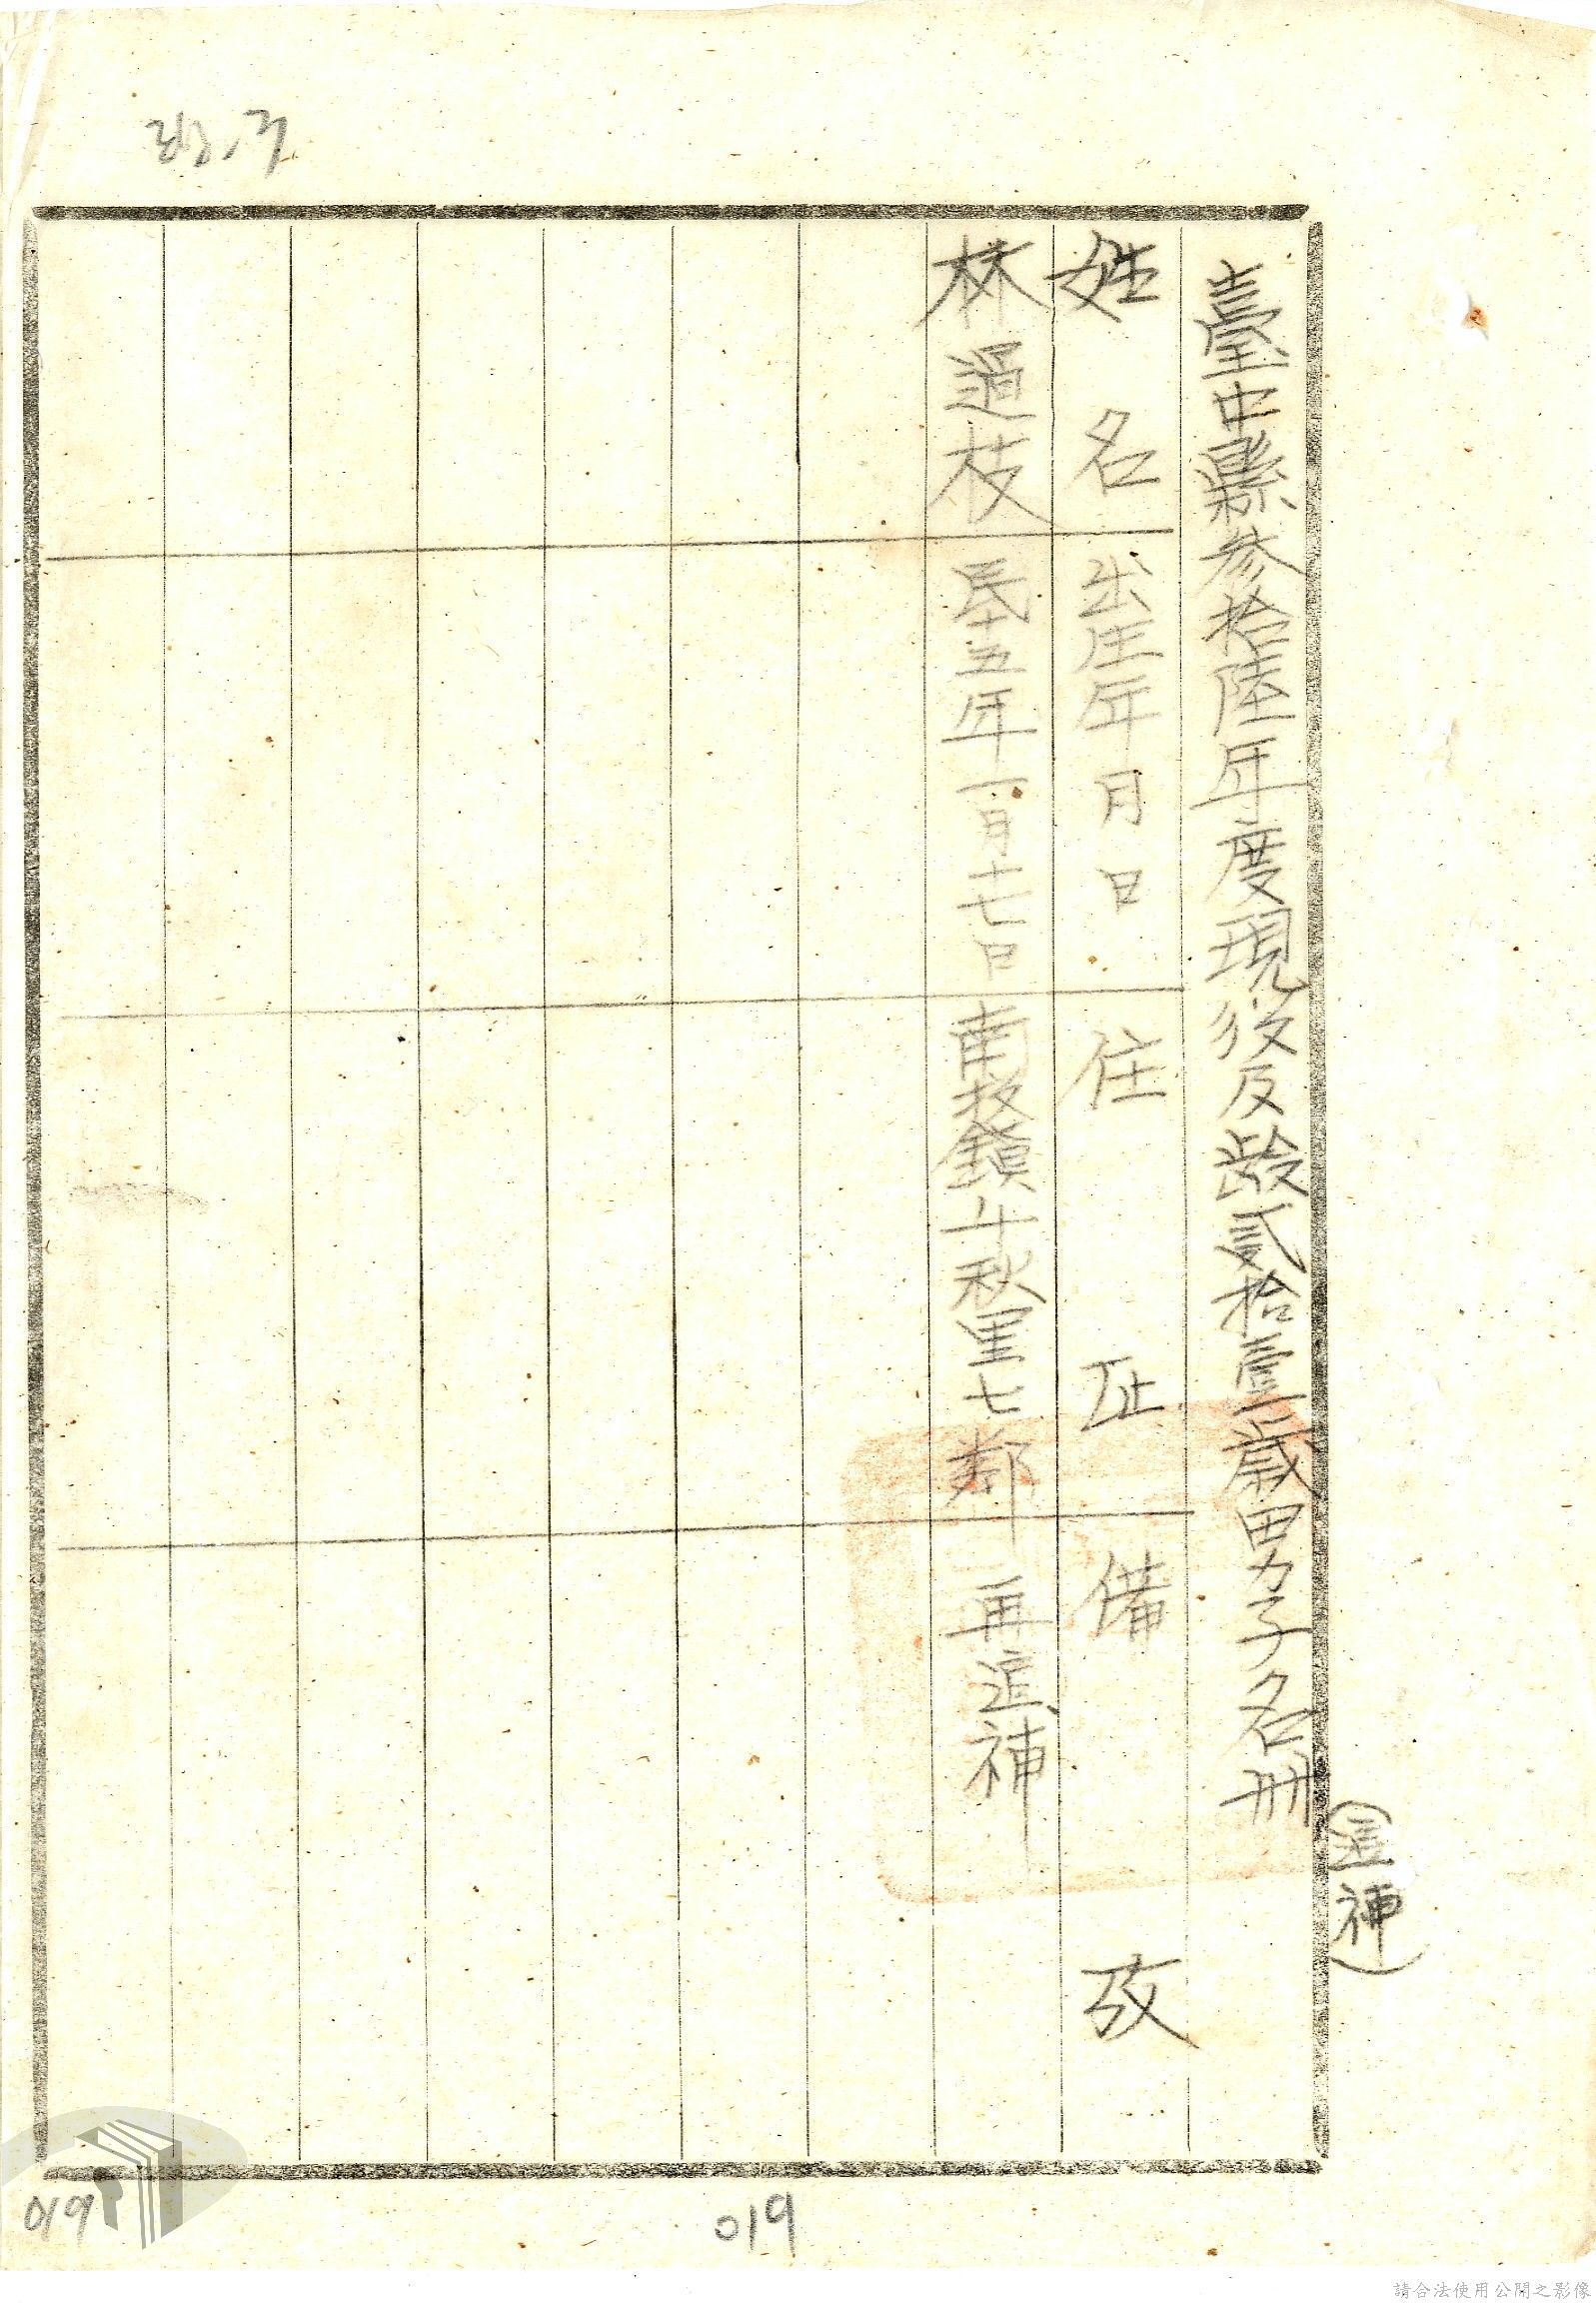 臺中縣參拾陸年度現役及齡貳拾壹歲男子名冊
(進補)
姓名 出生年月日 住址 備考
林過枝 民十五年一月十七日 南投鎮千秋里七鄰 再進補
019
019
請合法使用公開之影像